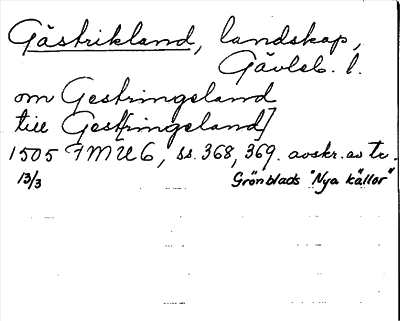 Gästrikland, landskap,
Gävleb. l.
om Gestringeland
till Gest[ringeland]
1505 FMU 6, ss. 368, 369. avskr. av tr.
13/3 Grönblads "Nya källor"